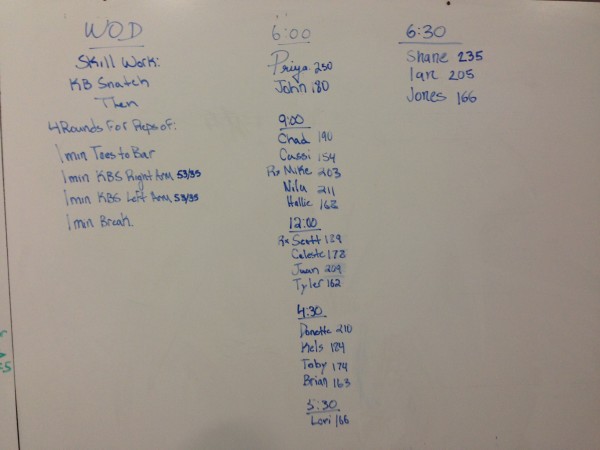 WOD
Skill Work:
KB Snatch
Then
4 Rounds For Reps of:
1 min Toes to Bar
1 min KBS Right Arm 53/35
1 min KBS Left Arm 53/35
1 min Break.
6:00
Priya 250
John 180
9:00
Chad 190
Cassi 154
Rx Mike 203
Nilu 211
Hallie 168
12:00
Rx Scott 139
Celeste 178
Juan 209
Tyler 162
4:30
Donette 210
Mels 124
Toby 174
Brian 163
5:30
Lori 166
6:30
Shane 235
Ian 205
Jones 166